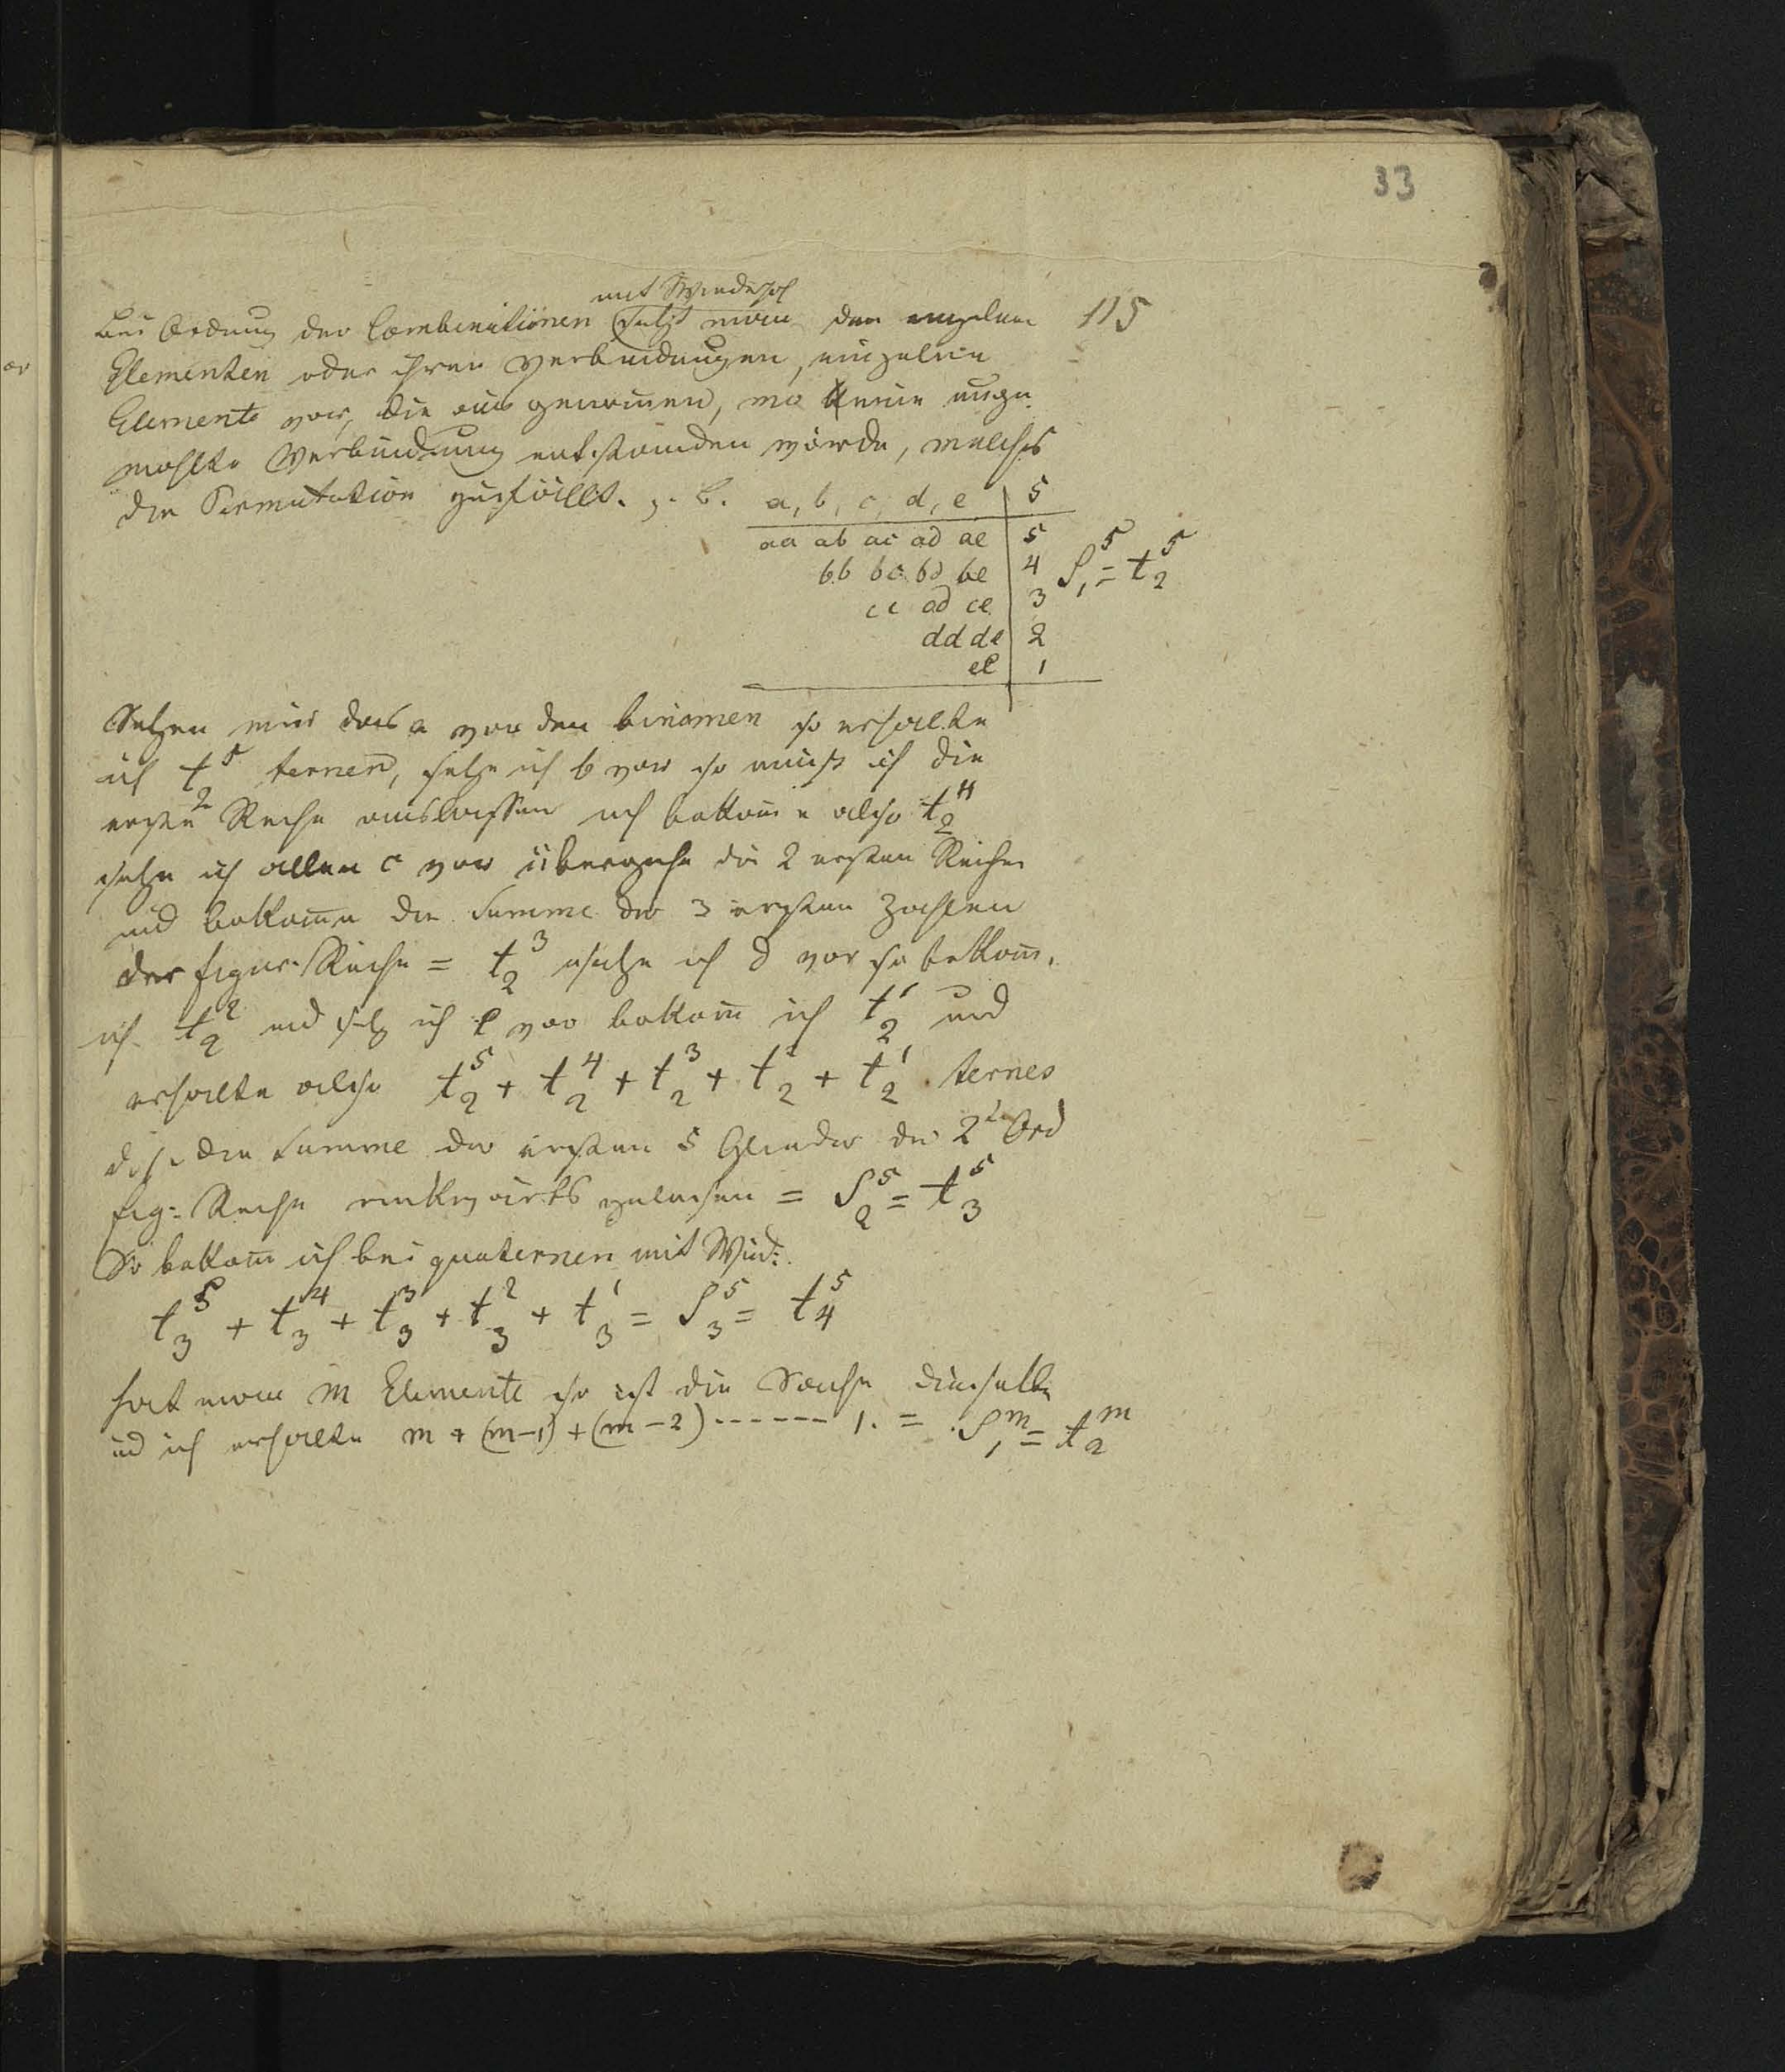 33
mit Wiederhol
Bei Ordnung der Combinationen setzt man den einzelnen 115
Elementen oder ihren Verbindungen, einzelne
Elemente vor, die aus genomen, wo keine
Verbindung entstanden würde, welches
der Permutation zufällt. z. B. a, b, c, d, e | 5
aa ab ac ad ae | 5
bb bc bd be | 4 S₁⁵ = t₂⁵
cc cd ce | 3
dd de | 2
ee | 1
Setzen wir das a vor den binomen so erhalte
ich t₂⁵ ternen, setze ich b vor so muß ich die
erste Reihe auslassen ich bekome also t₂⁴
setze ich allen c vor übergehe die 2 ersten Reihen
und bekome die Summe der 3 ersten Zahlen
der figur. Reihe = t₂³ setze ich d vor so bekom.
ich t₂² und setz ich e vor bekom ich t₂¹ und
erhalte also t₂⁵ + t₂⁴ + t₂³ + t₂² + t₂¹ ternes
die Summe der ersten 5 Glieder der 2ᵗ Ord
fig: Reihe rückwärts gelesen = S₂⁵ = t₃⁵
So bekom ich bei quaternen mit Wied:
t₃⁵ + t₃⁴ + t₃³ + t₃² + t₃¹ = S₃⁵ = t₄⁵
hat man m Elemente so ist die Sache dieselbe
und ich erhalte m + (m-1) + (m-2) ------ 1. = S₁ᵐ = t₂ᵐ